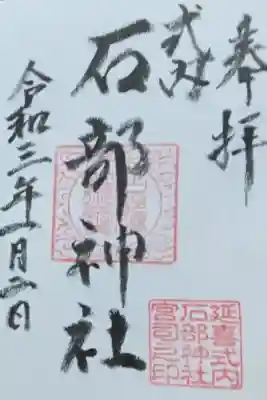 奉拝
式内
石部神社
令和三年一月二日
延喜式内
石部神社
宮司之印